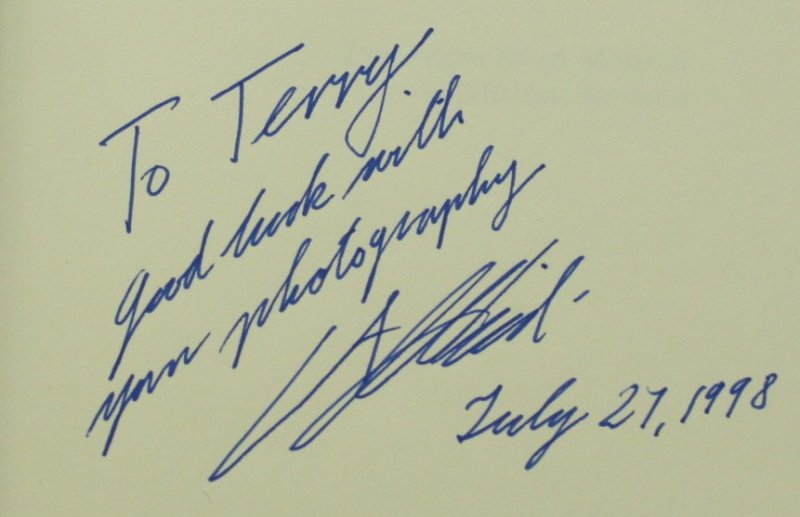 To Terry
good luck with
your photography
July 27, 1998